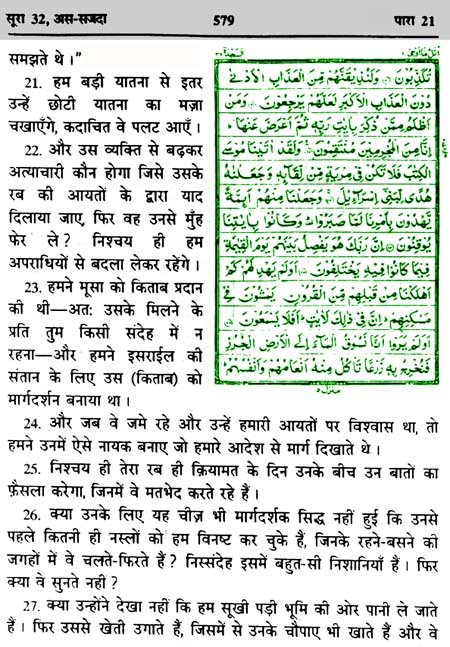 सूरा 32, अस-सजदा 579 पारा 21
समझते थे।"
21. हम बड़ी यातना से इतर
उन्हें छोटी यातना का मज़ा
चखाएँगे, कदाचित वे पलट आएँ।
22. और उस व्यक्ति से बढ़कर
अत्याचारी कौन होगा जिसे उसके
रब की आयतों के द्वारा याद
दिलाया जाए, फिर वह उनसे मुँह
फेर ले? निश्चय ही हम
अपराधियों से बदला लेकर रहेंगे।
23. हमने मूसा को किताब प्रदान
की थी—अतः उसके मिलने के
प्रति तुम किसी संदेह में न
रहना—और हमने इसराईल की
संतान के लिए उस (किताब) को
मार्गदर्शन बनाया था।
تُكَذِّبُونَ وَلَنُذِيقَنَّهُمْ مِّنَ الْعَذَابِ الْأَدْنٰى
دُونَ الْعَذَابِ الْأَكْبَرِ لَعَلَّهُمْ يَرْجِعُونَ وَمَنْ
أَظْلَمُ مِمَّنْ ذُكِّرَ بِاٰيٰتِ رَبِّهٖ ثُمَّ أَعْرَضَ عَنْهَا
إِنَّا مِنَ الْمُجْرِمِينَ مُنْتَقِمُونَ وَلَقَدْ اٰتَيْنَا مُوسَى
الْكِتٰبَ فَلَا تَكُنْ فِي مِرْيَةٍ مِّنْ لِّقَائِهٖ وَجَعَلْنٰهُ
هُدًى لِّبَنِي إِسْرَاءِيلَ وَجَعَلْنَا مِنْهُمْ أَئِمَّةً
يَّهْدُونَ بِأَمْرِنَا لَمَّا صَبَرُوا وَكَانُوا بِاٰيٰتِنَا
يُوقِنُونَ إِنَّ رَبَّكَ هُوَ يَفْصِلُ بَيْنَهُمْ يَوْمَ الْقِيٰمَةِ
فِيمَا كَانُوا فِيهِ يَخْتَلِفُونَ أَوَلَمْ يَهْدِ لَهُمْ كَمْ
أَهْلَكْنَا مِنْ قَبْلِهِمْ مِّنَ الْقُرُونِ يَمْشُونَ فِي
مَسٰكِنِهِمْ إِنَّ فِي ذٰلِكَ لَاٰيٰتٍ أَفَلَا يَسْمَعُونَ
أَوَلَمْ يَرَوْا أَنَّا نَسُوقُ الْمَاءَ إِلَى الْأَرْضِ الْجُرُزِ
فَنُخْرِجُ بِهٖ زَرْعًا تَأْكُلُ مِنْهُ أَنْعَامُهُمْ وَأَنْفُسُهُمْ
24. और जब वे जमे रहे और उन्हें हमारी आयतों पर विश्वास था, तो
हमने उनमें ऐसे नायक बनाए जो हमारे आदेश से मार्ग दिखाते थे।
25. निश्चय ही तेरा रब ही क़ियामत के दिन उनके बीच उन बातों का
फ़ैसला करेगा, जिनमें वे मतभेद करते रहे हैं।
26. क्या उनके लिए यह चीज़ भी मार्गदर्शक सिद्ध नहीं हुई कि उनसे
पहले कितनी ही नस्लों को हम विनष्ट कर चुके हैं, जिनके रहने-बसने की
जगहों में वे चलते-फिरते हैं? निस्संदेह इसमें बहुत-सी निशानियाँ हैं। फिर
क्या वे सुनते नहीं?
27. क्या उन्होंने देखा नहीं कि हम सूखी पड़ी भूमि की ओर पानी ले जाते
हैं। फिर उससे खेती उगाते हैं, जिसमें से उनके चौपाए भी खाते हैं और वे